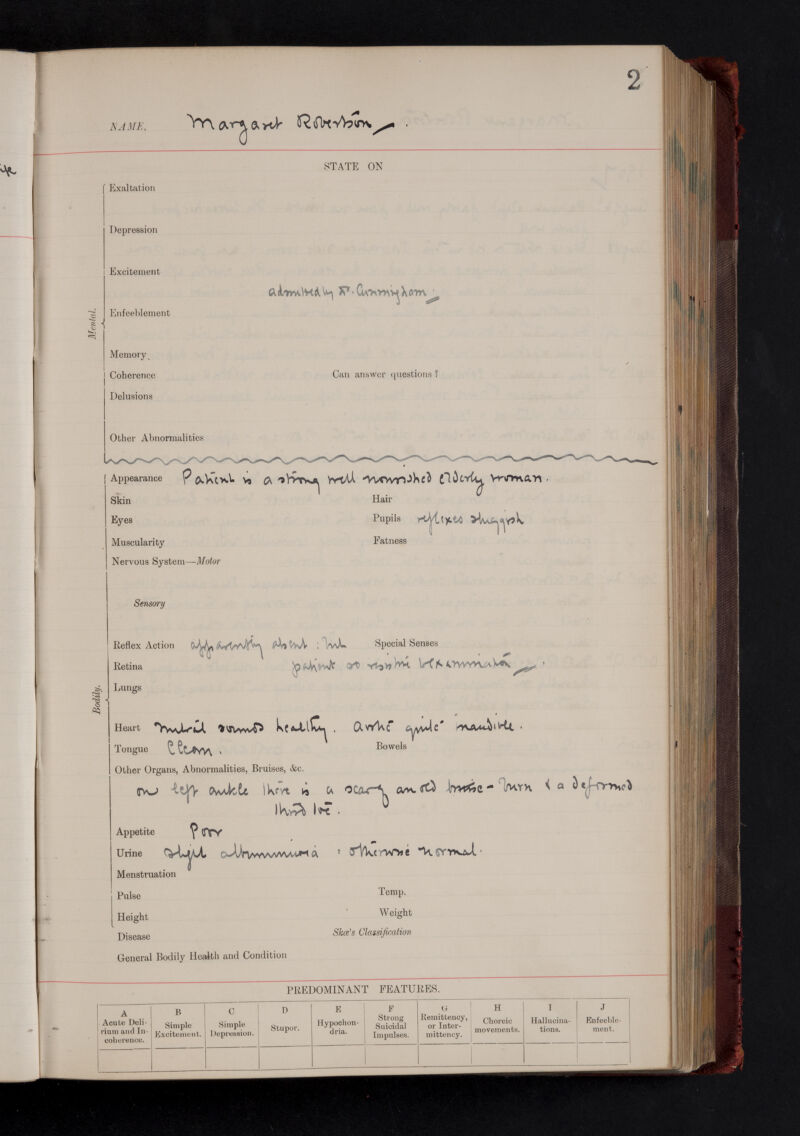 2
NAME. Margaret Robertson.
STATE ON
Mental.
Exaltation
Depression
Excitement
admitted by Dr. Cunningham
Enfeeblement
Memory
Coherence Can answer questions?
Delusions
Other Abnormalities
Bodily.
Appearance Patient is a strong well nourished elderly woman.
Skin Hair
Eyes Pupils reflexes sluggish
Muscularity Fatness
Nervous System—Motor
Sensory
Reflex Action apparently absent : but Special Senses
Retina patient so resistive examination.
Lungs
Heart mitral sounds healthy. Aortic quite inaudible.
Tongue Clean. Bowels
Other Organs, Abnormalities, Bruises, &c.
on left ankle there is a scar of an old burn & a deformed
third toe.
Appetite Poor
Urine Slight albuminuria : otherwise normal.
Menstruation
Pulse Temp.
Height Weight
Disease Skæ's Classification
General Bodily Health and Condition
PREDOMINANT FEATURES.
A B C D E F G H I J
Acute Delirium and Incoherence. Simple Excitement. Simple Depression. Stupor. Hypochondria. Strong Suicidal Impulses. Remittency, or Intermittency. Choreic movements. Hallucinations. Enfeeblement.